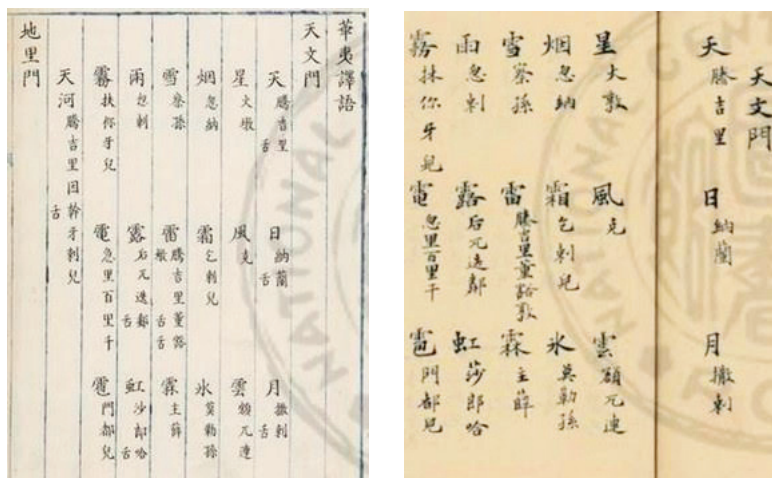 華夷譯語
天文門
天 騰吉里舌 日 納蘭舌 月 撒剌舌
星 火墩 風 克 雲 額兀連
烟 忽納 霜 乞剌兒 氷 莫勒孫
雪 察孫 雷 騰吉里董豁墩舌舌 霖 主薛
雨 忽剌 露 兀迭舌 虹 沙郎哈舌
霧 扶你牙兒 電 急里百里千 雹 門都兒
天河 騰吉里因斡牙剌兒舌
地里門
天文門
天 騰吉里 日 納蘭 月 撒剌
星 火敦 風 克 雲 額兀連
烟 忽納 霜 乞剌兒 氷 莫勒孫
雪 察孫 雷 騰吉里董豁敦 霖 主薛
雨 忽剌 露 后兀迭鄰 虹 莎郎哈
霧 抹你牙兒 電 忽里百里千 雹 門都兒
NATIONAL
NATIONAL CENT